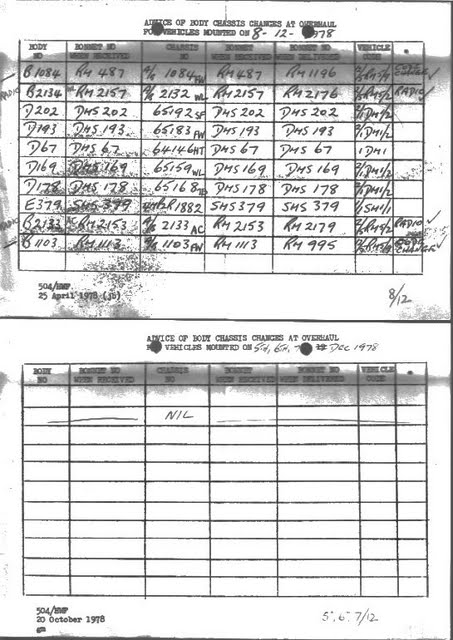 ADVICE OF BODY CHASSIS CHANGES AT OVERHAUL
VEHICLES MOUNTED ON 8 - 12 - 1978
BODY NO BONNET NO WHEN RECEIVED CHASSIS NO BONNET WHEN RECEIVED BONNET NO WHEN DELIVERED VEHICLE CODE
B1084 RM 487 1084 FW RM 487 RM 1196 CODE CHANGE ✓
RADIO B2134 RM 2157 2132 WL RM 2157 RM 2176 RADIO ✓
D202 DMS 202 65192 SF DMS 202 DMS 202
D193 DMS 193 65183 FW DMS 193 DMS 193
D67 DMS 67 64146 HT DMS 67 DMS 67 1 DM1
D169 DMS 169 65159 WL DMS 169 DMS 169
D178 DMS 178 65168 DMS 178 DMS 178
E379 SMS 379 1882 SMS 379 SMS 379
RADIO B2133 RM 2153 2133 AC RM 2153 RM 2179 RADIO ✓
B1103 RM 1113 1103 FW RM 1113 RM 995 CHANGE ✓
504/HMF
25 April 1978 (jb)
8/12
ADVICE OF BODY CHASSIS CHANGES AT OVERHAUL
VEHICLES MOUNTED ON 5th, 6th, 7 DEC 1978
BODY NO BONNET NO WHEN RECEIVED CHASSIS NO BONNET WHEN RECEIVED BONNET NO WHEN DELIVERED VEHICLE CODE
NIL
504/HMF
20 October 1978
5. 6. 7/12